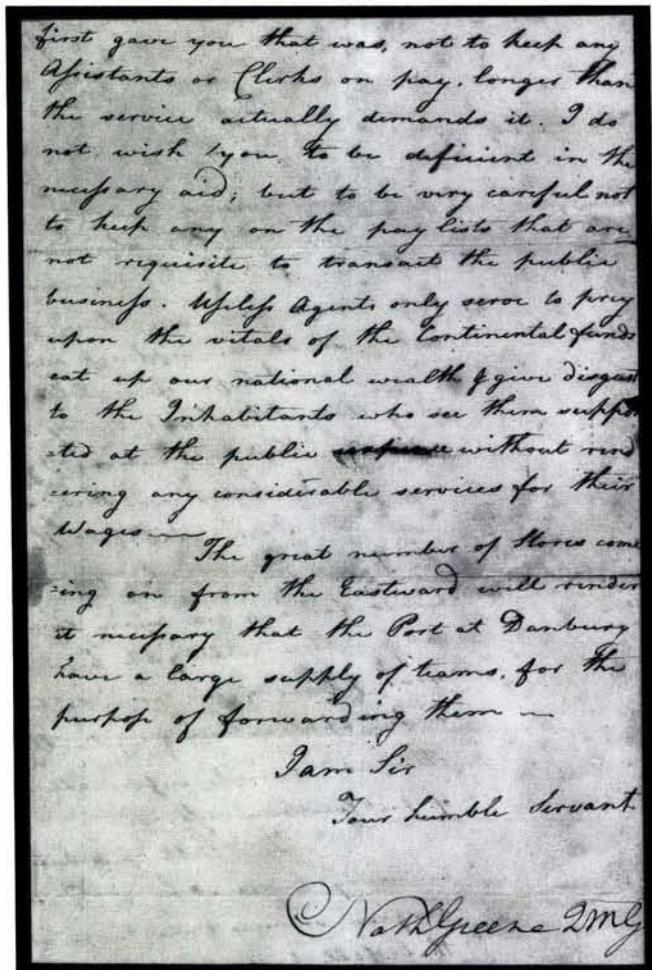 first gave you that was, not to keep any
Assistants or Clerks on pay, longer than
the service actually demands it. I do
not wish you to be deficient in the
necessary aid; but to be very careful not
to keep any on the pay lists that are
not requisite to transact the public
business. Useless Agents only serve to prey
upon the vitals of the Continental funds
eat up our national wealth & give disgust
to the Inhabitants who see them suppor
:ted at the public expence without rend
:ering any considerable services for their
Wages —
The great number of Stores come
:ing on from the Eastward will render
it necessary that the Post at Danbury
have a large supply of teams, for the
purpose of forwarding them —
I am Sir
Your humble Servant
Nath Greene QMG